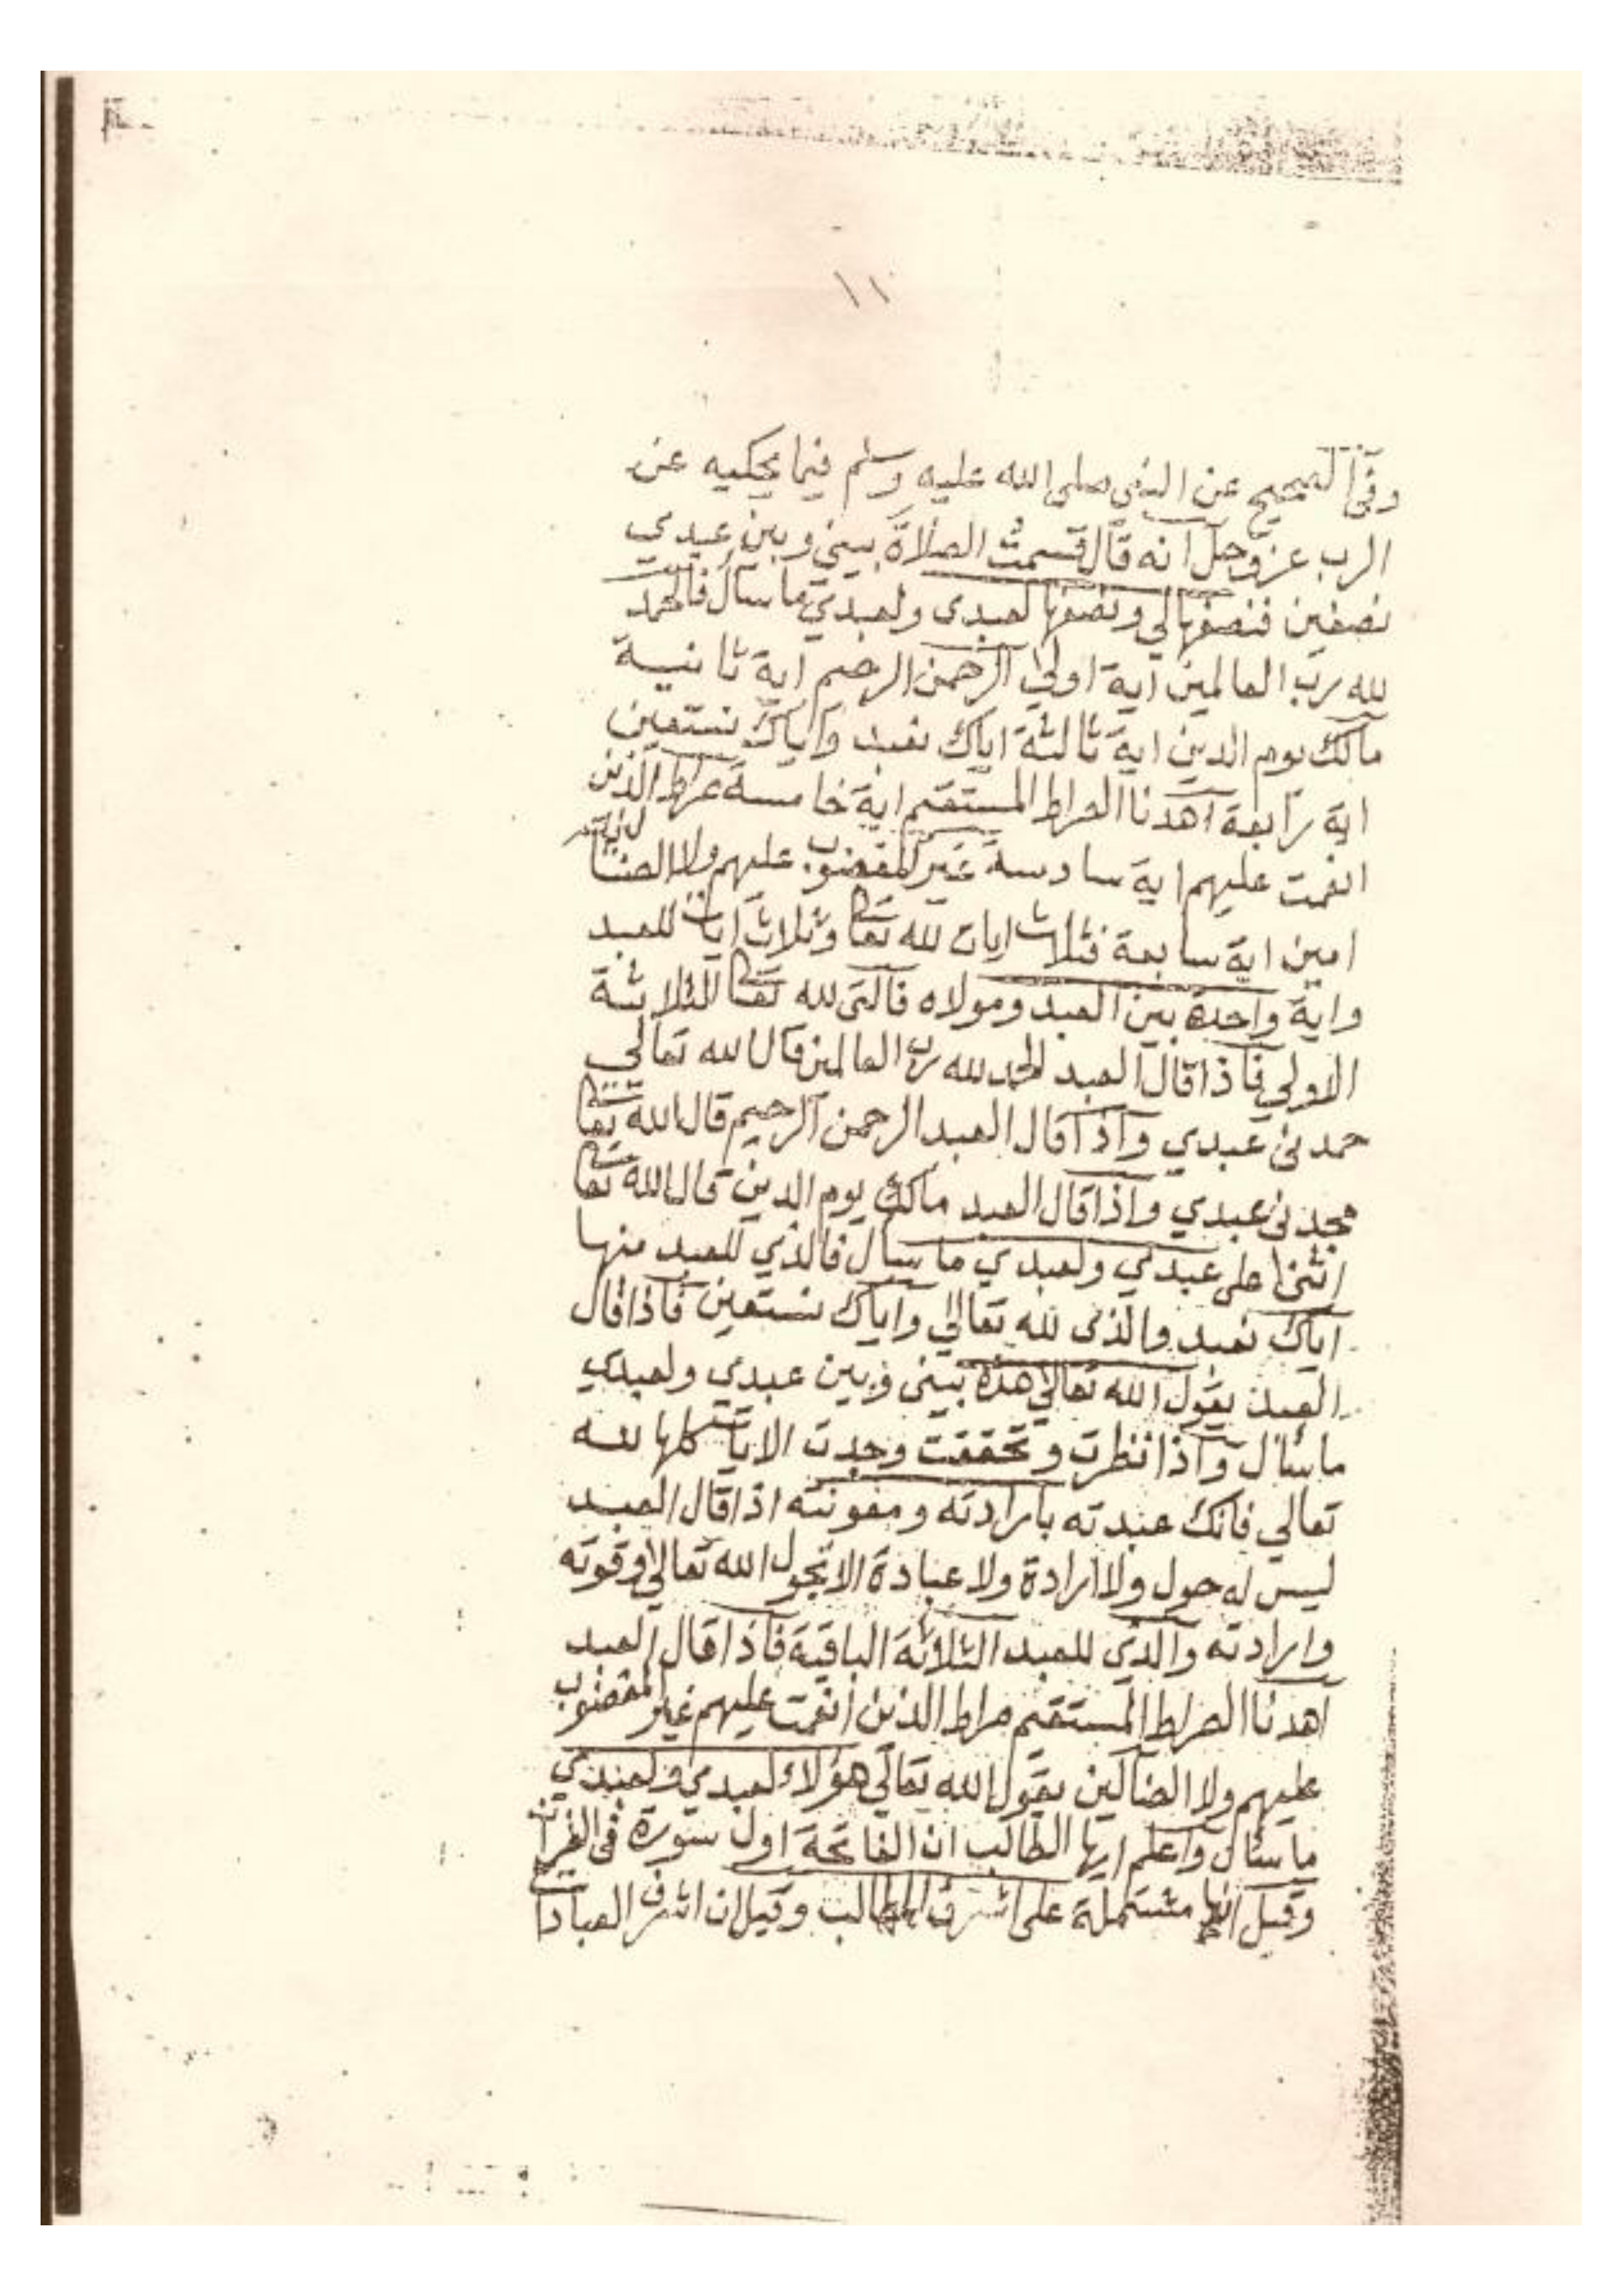 ١١
وفي الصحيح عن النبي صلى الله عليه وسلم فيما يحكيه عن
الرب عز وجل انه قال قسمت الصلاة بيني وبين عبدي
نصفين فنصفها لي ونصفها لعبدي ولعبدي ما سأل فالحمد
لله رب العالمين آية اولي الرحمن الرحيم آية ثانية
مالك يوم الدين اية ثالثة اياك نعبد واياك نستعين
اية رابعة اهدنا الصراط المستقيم اية خامسة صراط الذين
انعمت عليهم اية سادسة غير المغضوب عليهم ولا الضالين
امين اية سابعة فثلاث ايات لله تعا وثلاث آيات للعبد
واية واحدة بين العبد ومولاه فالتي لله تعا الثلاثة
الاولي فاذا قال العبد الحمد لله رب العالمين قال الله تعالي
حمدني عبدي واذا قال العبد الرحمن الرحيم قال الله تعا
مجدني عبدي واذا قال العبد مالك يوم الدين قال الله تعا
اثنى على عبدي ولعبدي ما سأل فالذي للعبد منها
اياك نعبد والذي لله تعالي واياك نستعين فاذا قال
العبد يقول الله تعالي هذه بيني وبين عبدي ولعبدي
ما سأل واذا نظرت وتحققت وجدت الايات كلها لله
تعالي فانك عبدته بارادته ومعونته اذا قال العبد
ليس له حول ولا ارادة ولا عبادة الا بحول الله تعالي وقوته
وارادته والذي للعبد الثلاثة الباقية فاذا قال العبد
اهدنا الصراط المستقيم صراط الذين انعمت عليهم غير المغضوب
عليهم ولا الضالين يقول الله تعالي هؤلاء لعبدي ولعبدي
ما سأل واعلم ايها الطالب ان الفاتحة اول سورة في القرآن
وقيل انها مشتملة على اشرف المطالب وقيل ان اشرف العبادات